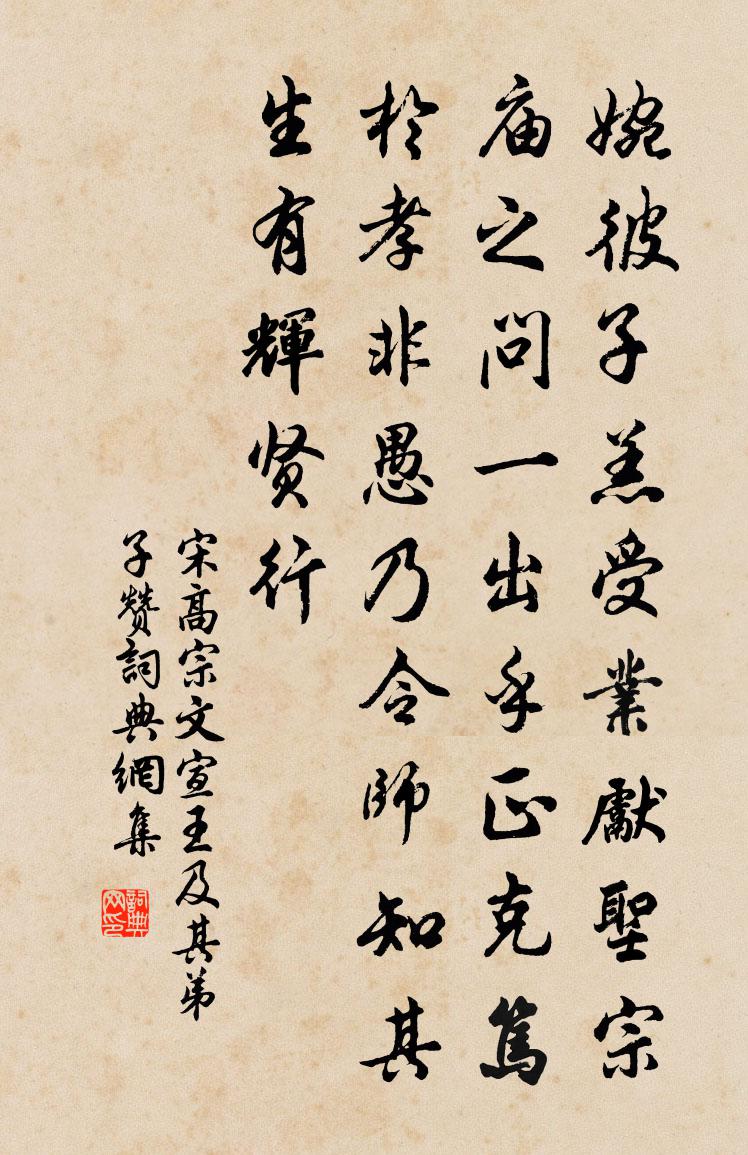 婉彼子羔受業獻聖宗
庙之问一出乎正克篤
於孝非愚乃令師知其
生有輝贤行
宋高宗文宣王及其弟
子赞詞典網集
詞典网印